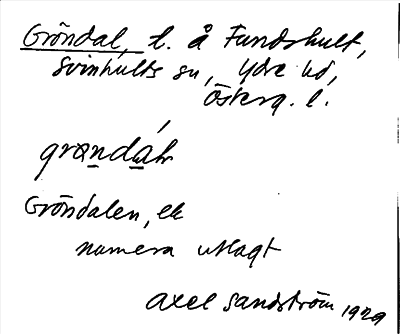 Gröndal, t. å Fundshult,
Svinhults sn, Ydre hd,
Österg. l.
Gröndalen, ek
numera utlagt
Axel Sandström 1929